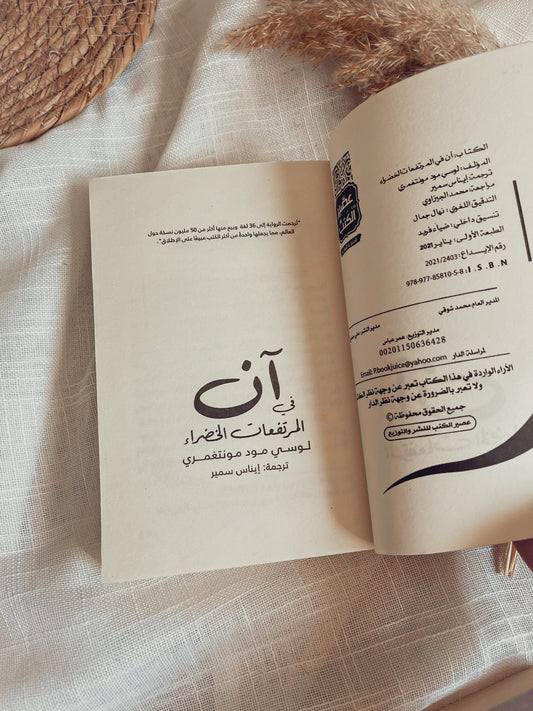 الكتاب: آن في المرتفعات الخضراء
المؤلف: لوسي مود مونتغمري
ترجمة: إيناس سمير
مراجعة: محمد الجيزاوي
التدقيق اللغوي: نهال جمال
تنسيق داخلي: ضياء فريد
الطبعة الأولى: يناير 2021
رقم الإيداع: 2021/2403
I.S.B.N: 978-977-85810-5-8
عصير
الكتب
المدير العام: محمد شوقي
مدير النشر: علي
مدير التوزيع: عمر عباس
00201150636428
لمراسلة الدار
Email: P.bookjuice@yahoo.com
الآراء الواردة في هذا الكتاب تعبر عن وجهة نظر
ولا تعبر بالضرورة عن وجهة نظر الدار
جميع الحقوق محفوظة ©
عصير الكتب للنشر والتوزيع
"تُرجمت الرواية إلى 36 لغة وبيع منها أكثر من 50 مليون نسخة حول
العالم، مما يجعلها واحدة من أكثر الكتب مبيعًا على الإطلاق".
آن
في
المرتفعات الخضراء
لوسي مود مونتغمري
ترجمة: إيناس سمير